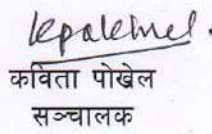 कविता पोखेल
सञ्चालक